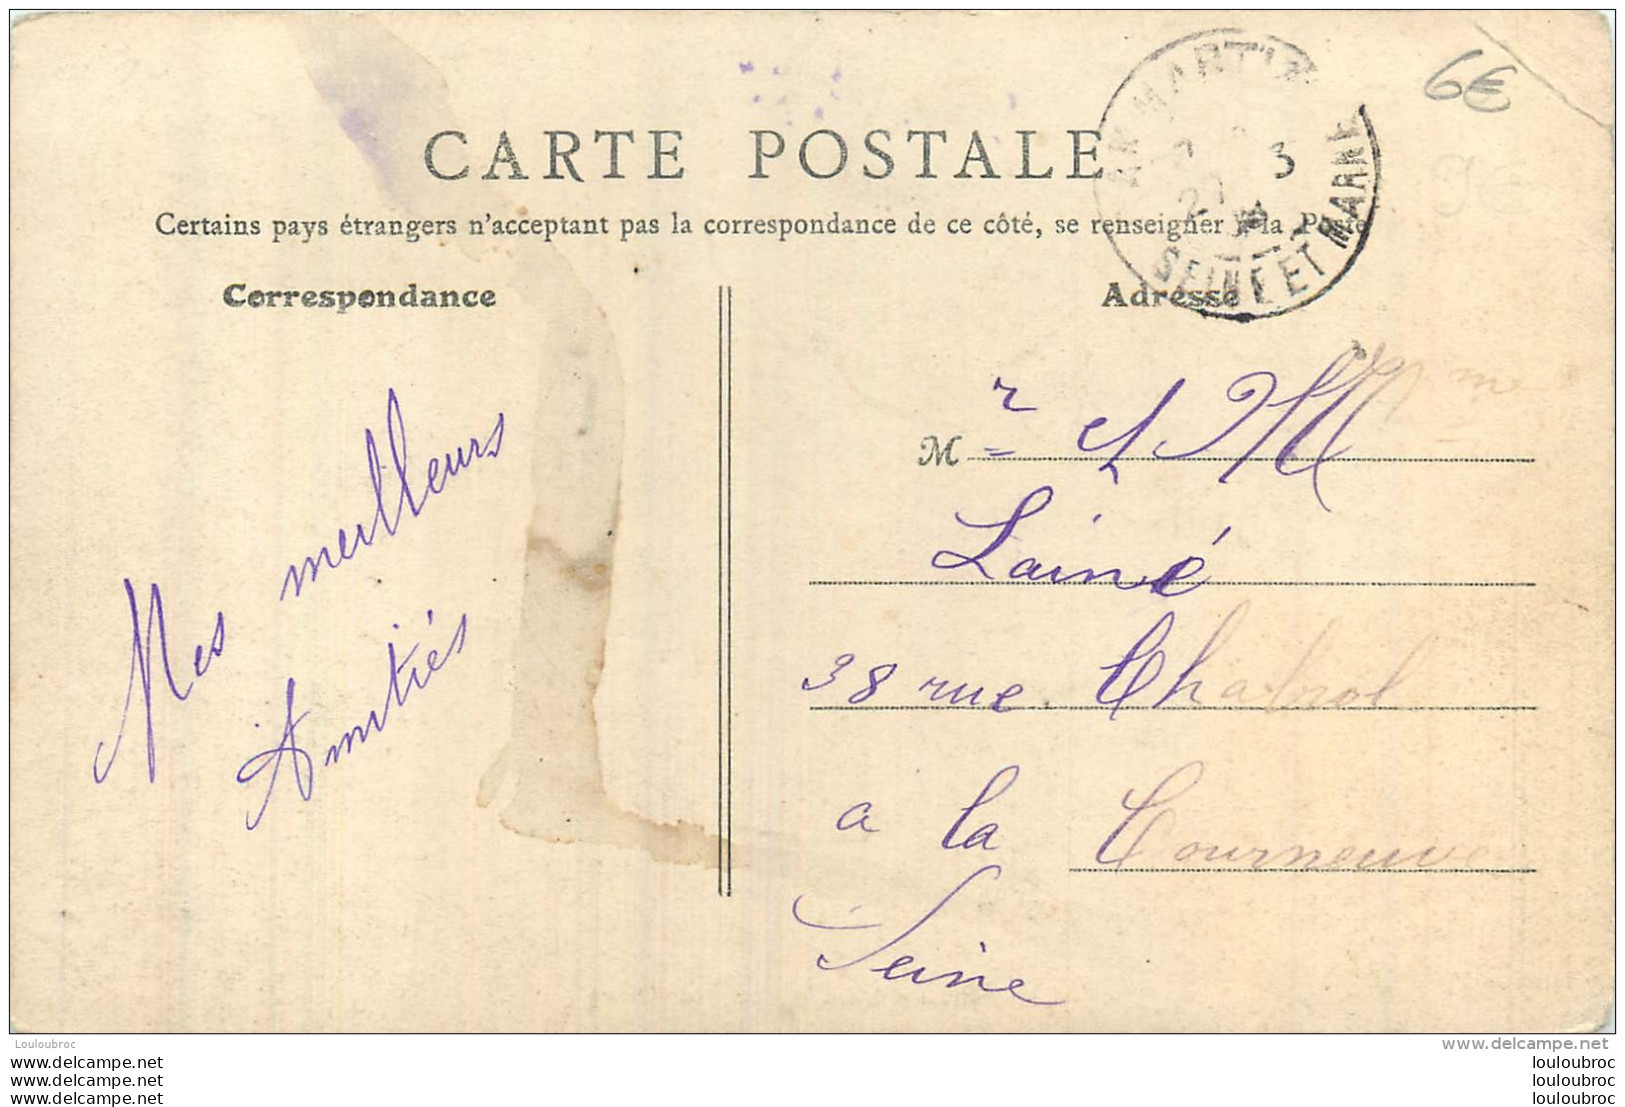 6€
CARTE POSTALE
3
27
SEINE ET MARNE
Certains pays étrangers n'acceptant pas la correspondance de ce côté, se renseigner à la Poste
Correspondance
Adresse
Mes meilleurs
Amitiés
M r et Mme
Lainé
38 rue Chabrol
a la Courneuve
Seine
Louloubroc
www.delcampe.net
www.delcampe.net
louloubroc
www.delcampe.net
louloubroc
www.delcampe.net
louloubroc